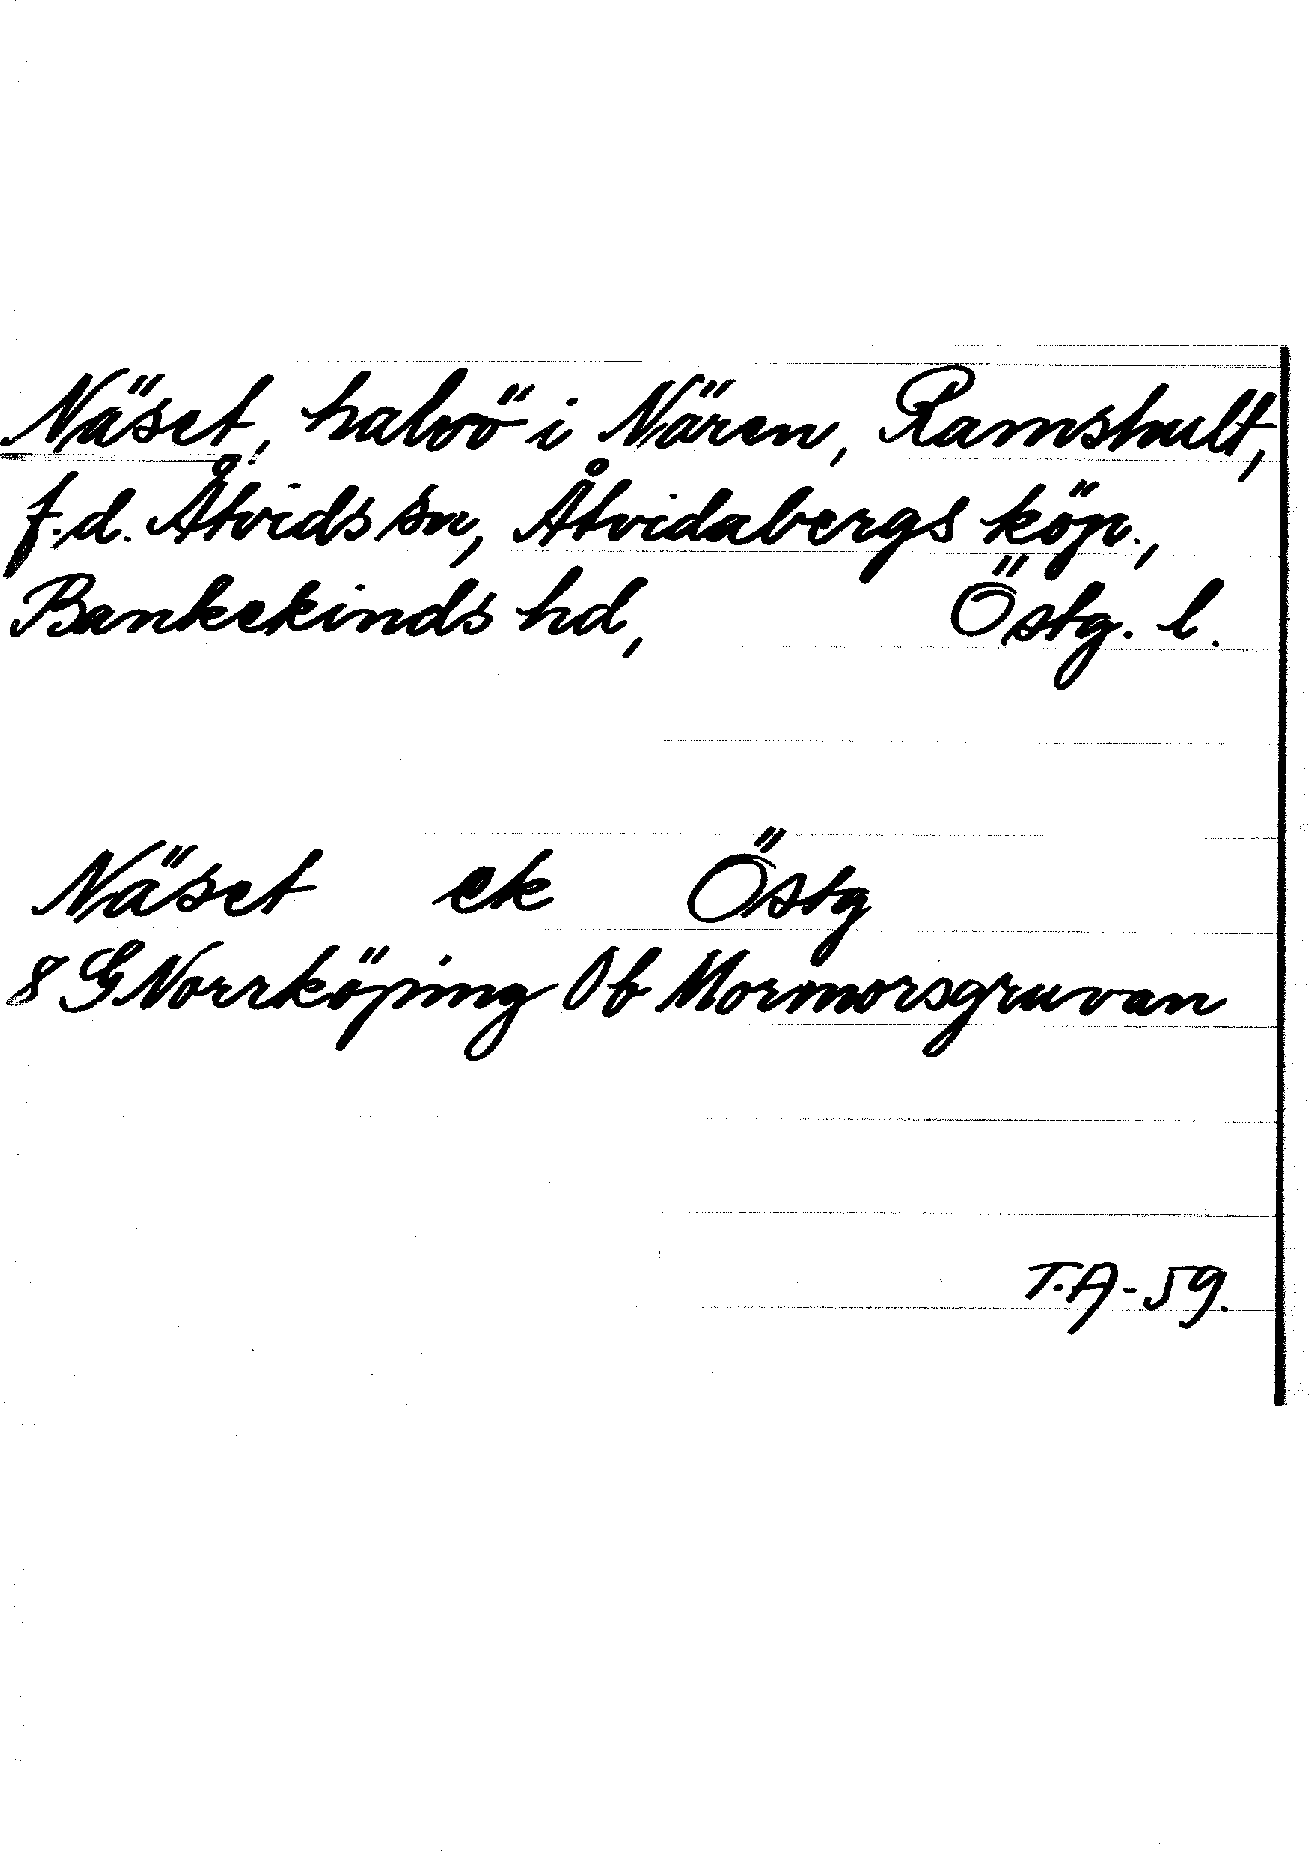 Näset, halvö i Nären, Ramshult,
f.d. Åtvids sn, Åtvidabergs köp.,
Bankekinds hd, Östg. l.
Näset ek Östg
8 G Norrköping 0b Mormorsgruvan
T.A-59.